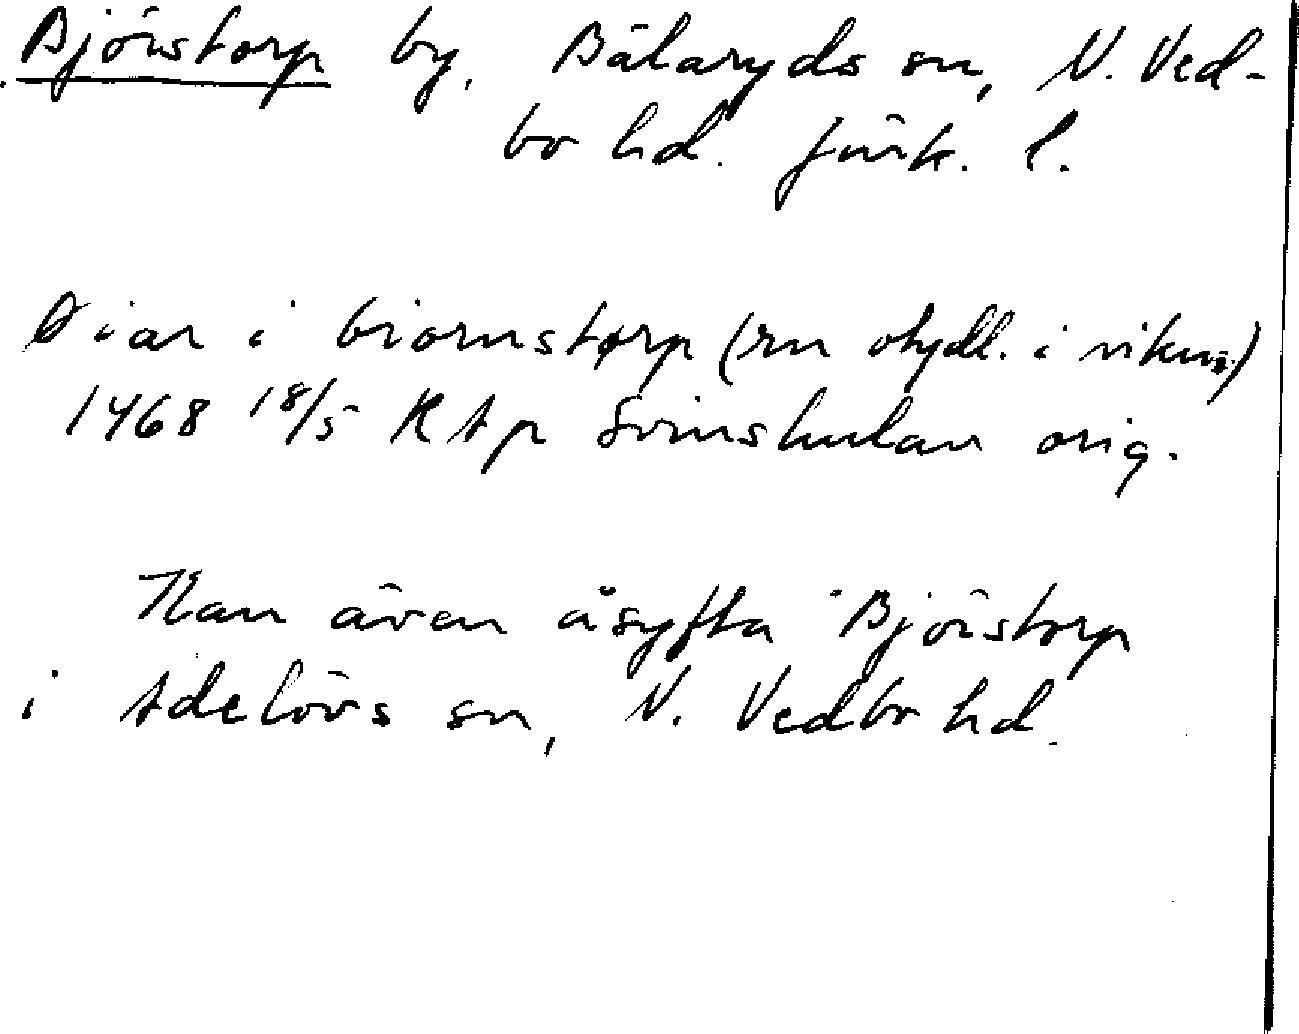 Björstorp by, Bälaryds sn, N. Ved-
bo hd. Jönk. l.
i biornstorp (rn otydl. i vikn.)
1468 18/5 RAp Svinhulan orig.
Kan även åsyfta Björstorp
i Adelövs sn, N. Vedbo hd.